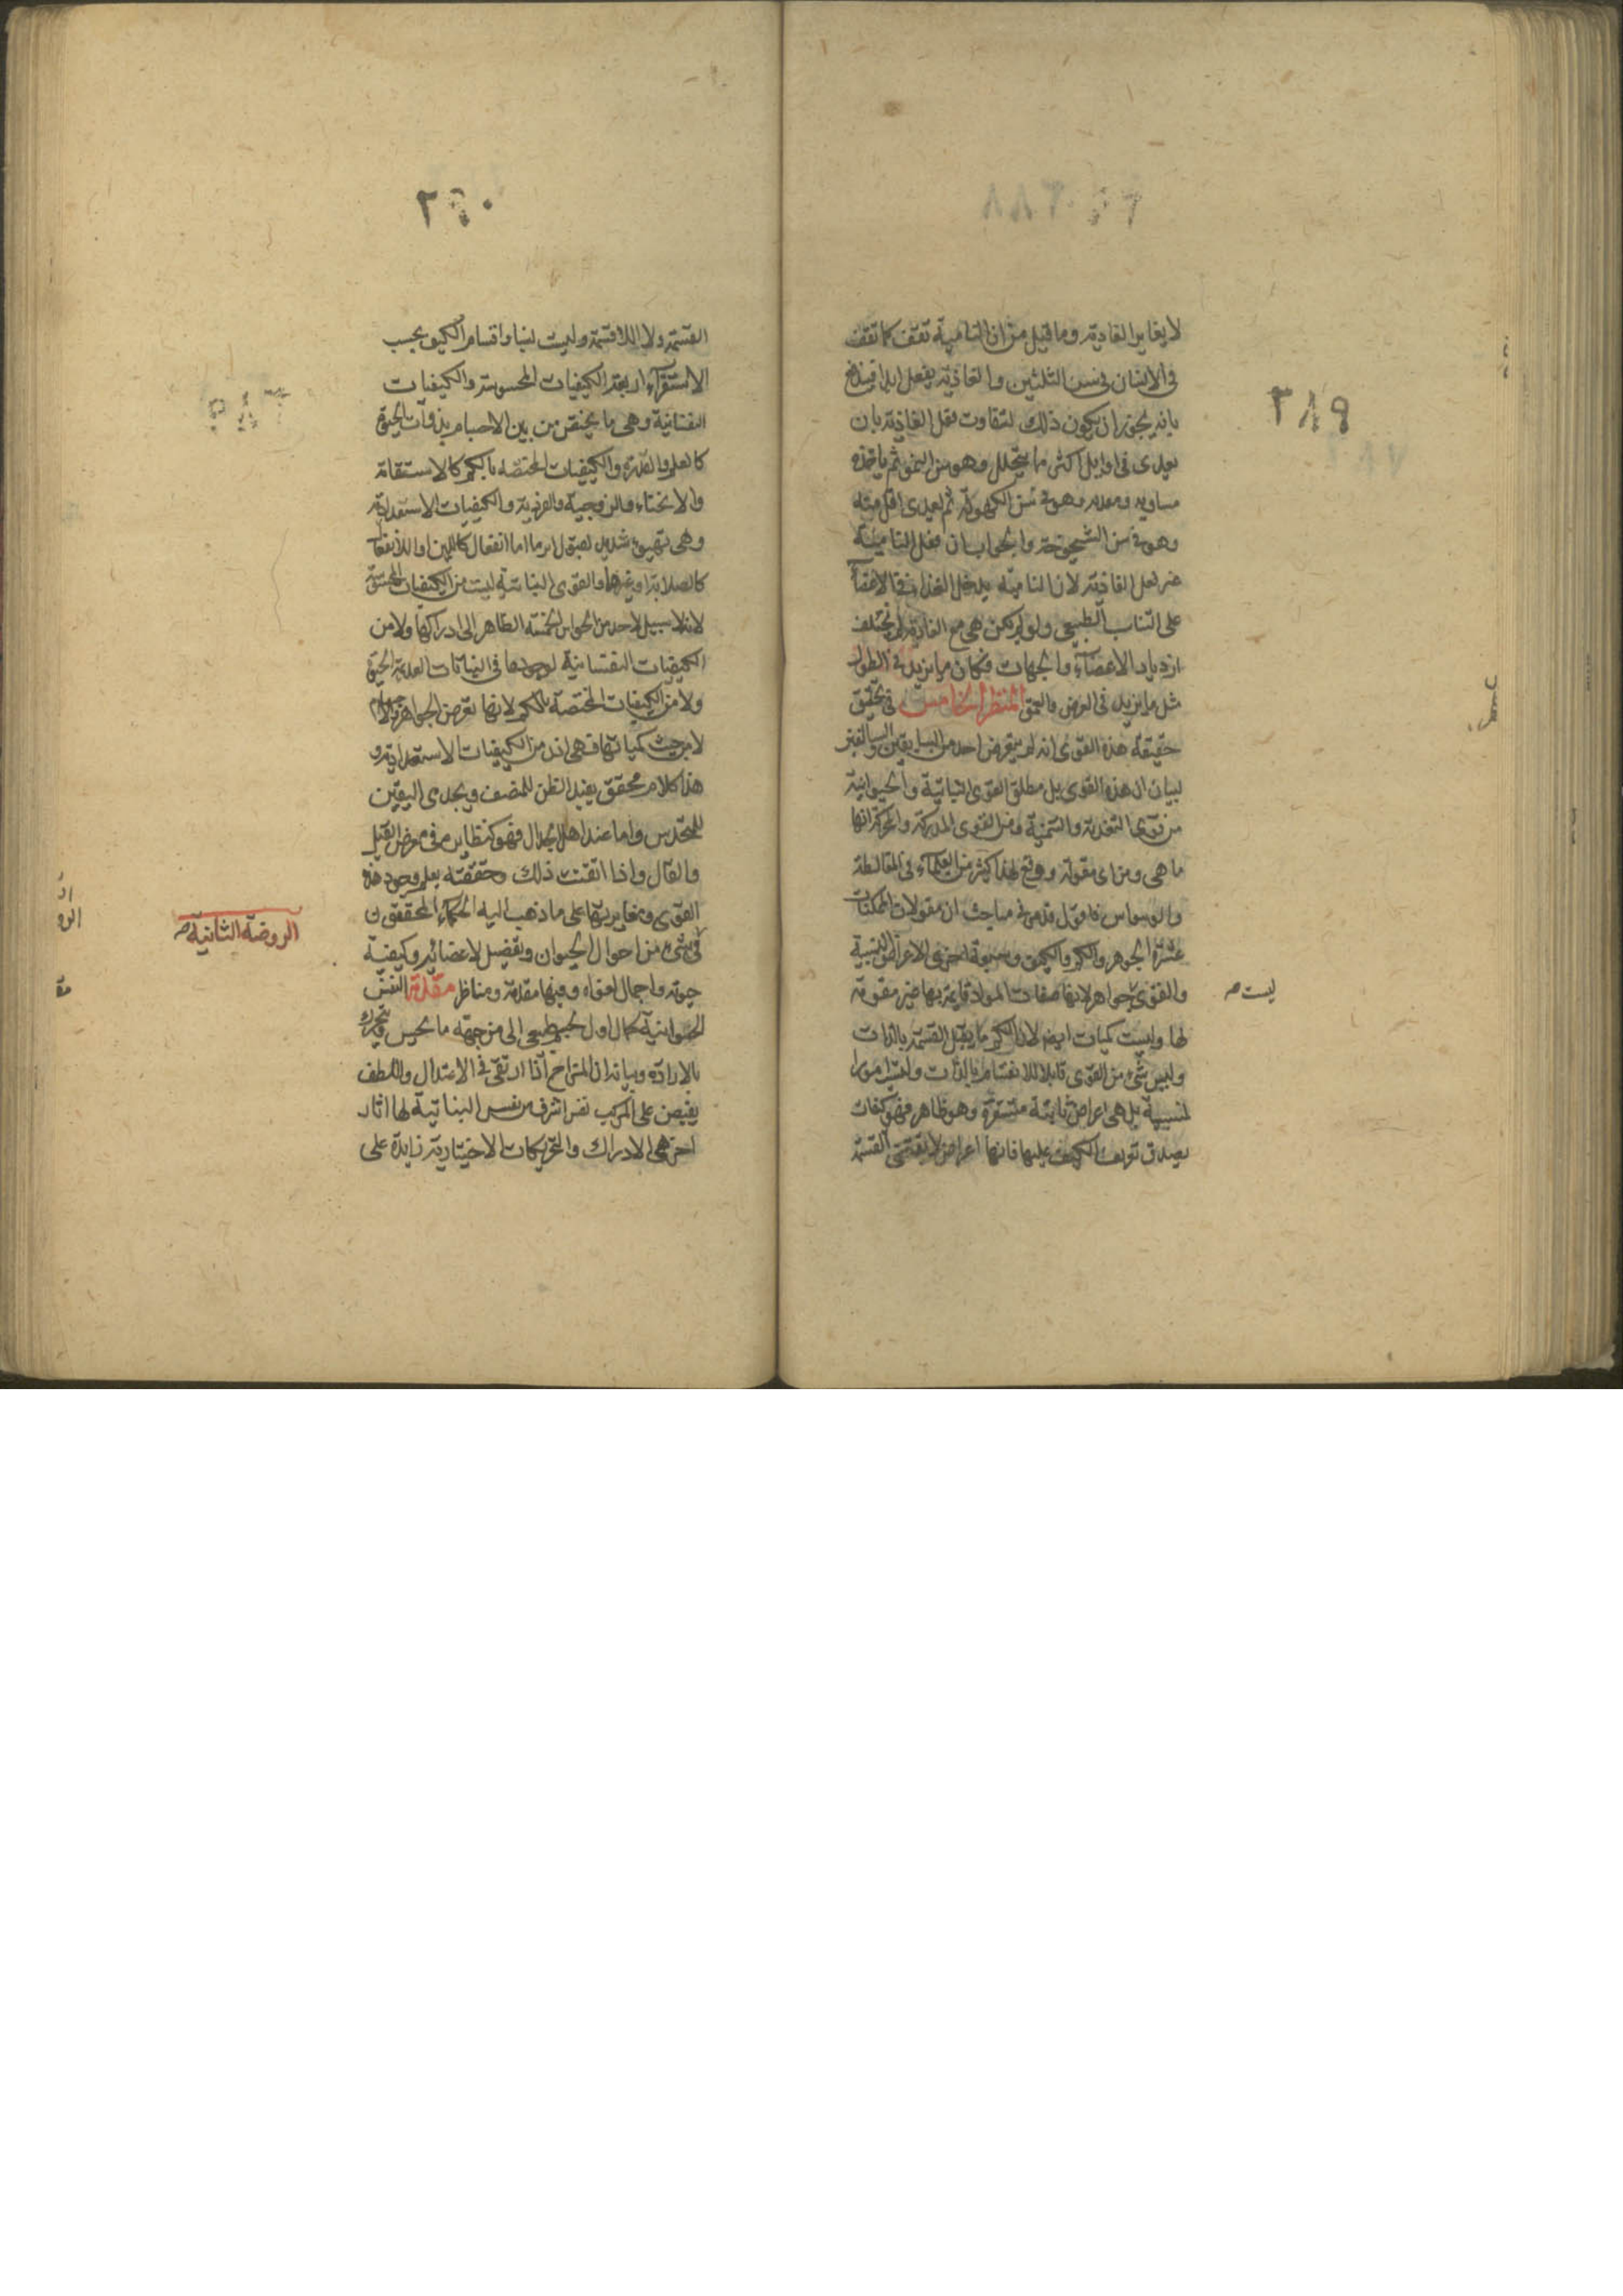 ٢٨٩
لا يغاير الغاذية وما قيل من ان النامية تقف كما تقف
في الانسان في سن الثلثين والغاذية يفعل ابدا فيندفع
بانه يجوز ان يكون ذلك لتفاوت فعل الغاذية بان
يعدى في اوايل اكثر ما يتحلل وهو سن النمو ثم يا
مساويه وهو في سن الكهولة ثم يعدى اقل منه
وهو في سن الشيخوخة والجواب ان فعل النامية
غير فعل الغاذية لان النامية يدخل الغذا في الاعضآ
على التناسب الطبيعي ولو لم يكن هي مع الغاذية لم يختلف
ازدياد الاعضآء والجهات فكان ما يزيد في الطول
مثل ما يزيد في العرض والعمق المنظر الخامس في تحقيق
حقيقة هذه القوى انه لم يتعرض احد من السابقين والسالفين
لبيان ان هذه القوى بل مطلق القوى النباتية والحيوانية
من قوى التغذية والتنمية ومن القوى المدركة والمحركة انها
ما هي ومن اى مقولة وهو يقع لهذا كثير من العلمآء في المغالطة
والوسواس فاقول قد مر في مباحث ان مقولات الممكنات
عشرة الجوهر والكم والكيف وسبعة اخرى للاعراض النسبية
والقوى جواهر لانها صفات المواد قايمة بها غير مقومة
ليست صح
لها وليست كميات ايضا لان الكم ما يقبل القسمة بالذات
وليس شيء من القوى قابلا للانقسام بالذات وليست امورا
نسبية بل هي اعراض ثابتة مستقرة وهو ظاهر فهو كيفيات
يصدق تعريف الكيف عليها فانها اعراض لا يقتضى القسمة
٢٩٠
القسمة ولا اللاقسمة وليست نسبا واقسام الكيف بحسب
الاستقرآء اربعة الكيفيات المحسوسة والكيفيات
النفسانية وهي ما يختص من بين الاجسام بذوات الحيوة
كالعلم والقدرة والكيفيات المختصة بالكم كالاستقامة
والانحناء والزوجية والفردية والكيفيات الاستعدادية
وهي تهيؤ شديد لقبول امر ما اما انفعال كاللين او اللاانفعال
كالصلابة او غيرهما والقوى النباتية ليست من الكيفيات المحسوسة
لانه لا سبيل لاحد من الحواس الخمسة الظاهر الى ادراكها ولا من
الكيفيات النفسانية لوجودها في النباتات العديمة الحيوة
ولا من الكيفيات المختصة بالكم لانها تعرض الجواهر والاجسام
لا من حيث كمياتها فهي اذن من الكيفيات الاستعدادية و
هذا كلام محقق يفيد الظن للمنصف ويجدى اليقين
للمتحدس واما عند اهل الجدال فهو كنظايره في معرض القيل
والقال واذا اتقنت ذلك وحققته يعلم وجود هذه
القوى ومغايرتها على ما ذهب اليه الحكمآء المحققون
الروضة الثانية صح
في شيء من احوال الحيوان وتفصيل لاعضائه وكيفية
حيوته واجمال قواه وفيها مقدمة ومناظر مقدمة النفس
الحيوانية كمال اول لجسم طبيعى الى من جهة ما يحس ويتحرك
بالارادة وبيانه ان المتزاج اذا ارتقى في الاعتدال واللطف
يفيض على المركب نفس اشرف من نفس النباتية لها اثار
اخر هي الادراك والتحريكات الاختيارية زايدة على